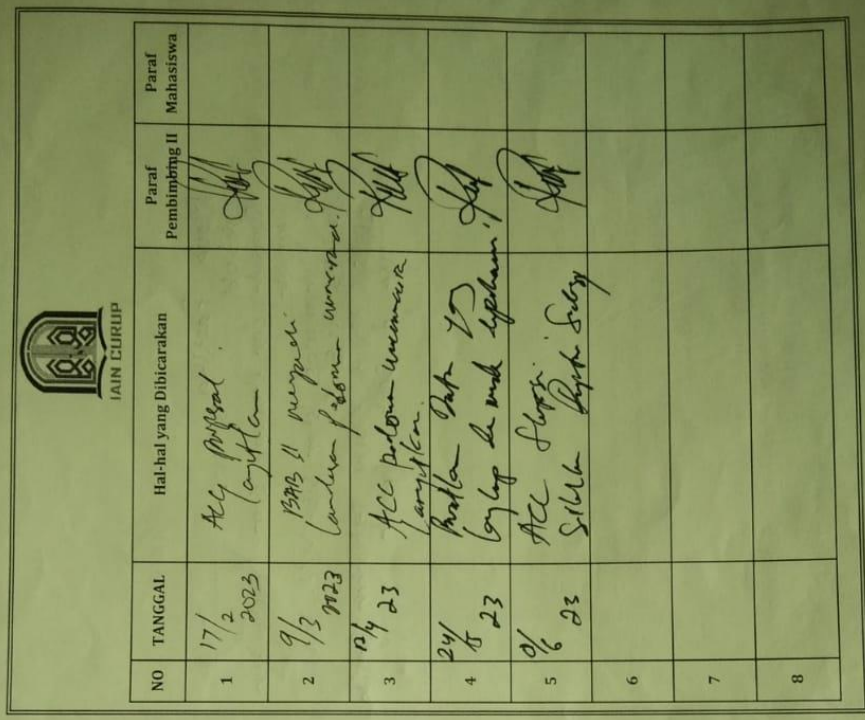 IAIN CURUP
NO TANGGAL Hal-hal yang Dibicarakan Paraf Pembimbing II Paraf Mahasiswa
1 17/2 2023 ACC proposal
lanjutkan
2 9/3 2023 BAB II menjadi
landasan pedoman wawancara
3 12/4 23 ACC pedoman wawancara
lanjutkan
4 24/5 23 Data yg
lengkap dan mudah dipahami
5 /6 23 ACC Skripsi
Silahkan
6
7
8